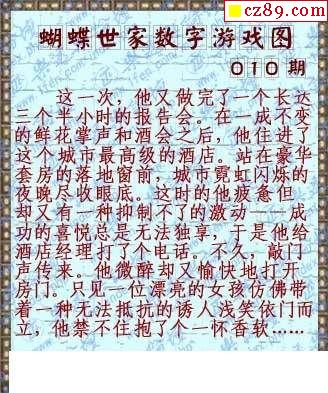 cz89.com
蝴蝶世家数字游戏图
010 期
这一次，他又做完了一个长达
三个半小时的报告会。在一成不变
的鲜花掌声和酒会之后，他住进了
这个城市最高级的酒店。站在豪华
套房的落地窗前，城市霓虹闪烁的
夜晚尽收眼底。这时的他疲惫但
却又有一种抑制不了的激动——成
功的喜悦总是无法独享，于是他给
酒店经理打了个电话。不久，敲门
声传来。他微醉却又愉快地打开
房门。只见一位漂亮的女孩仿佛带
着一种无法抵抗的诱人浅笑依门而
立，他禁不住抱了个一怀香软……